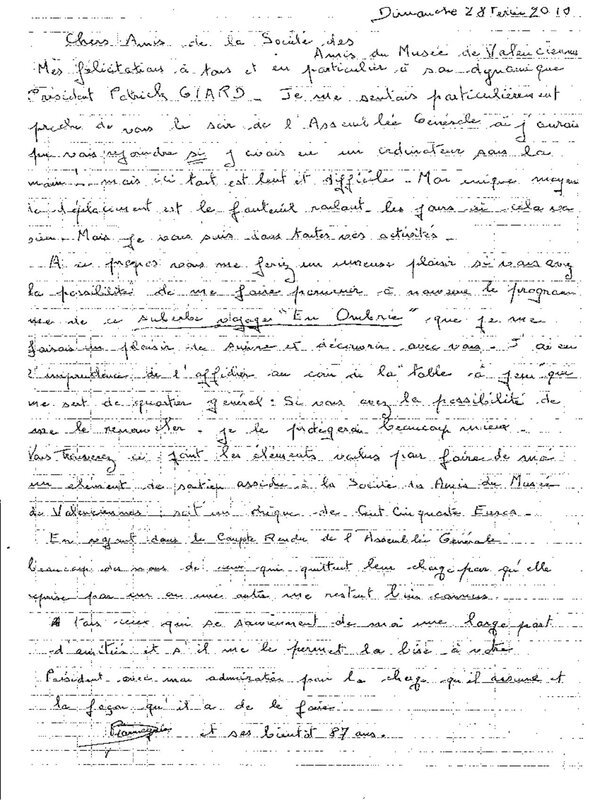 Dimanche 28 Février 2010
Chers Amis de la Société des
Amis du Musée de Valenciennes
Mes félicitations à tous et en particulier à son dynamique
Président Patrick GIARD - Je me sentais particulièrement
proche de vous le soir de l'Assemblée Générale où j'aurais
pu vous rejoindre si j'avais eu un ordinateur sous la
main! mais ici tout est lent et difficile - Mon unique moyen
de déplacement est le fauteuil roulant les jours où cela va
bien - Mais je vous suis dans toutes vos activités -
A ce propos vous me feriez un immense plaisir si vous avez
la possibilité de me faire parvenir à nouveau le program
me de ce superbe voyage "En Ombrie" que je me
faisais un plaisir de suivre et découvrir avec vous - J'ai eu
l'imprudence de l'afficher au coin de la "table à jeux" qui
me sert de quartier général : Si vous avez la possibilité de
me le renouveler - je le protégerai beaucoup mieux -
Vous trouverez ci-joint les éléments voulus pour faire de moi
un élément de soutien assidu à la Société des Amis du Musée
de Valenciennes : soit un chèque de Cent Cinquante Euros -
En voyant dans le Compte Rendu de l'Assemblée Générale
beaucoup de noms de ceux qui quittent leur charge pour qu'elle
reprise par un ou une autre me restent bien connus
A tous ceux qui se souviennent de moi une large part
d'amitiés et s'il me le permet la bise à votre
Président avec mon admiration pour la charge qu'il assume et
la façon qu'il a de le faire
et ses bientôt 87 ans.